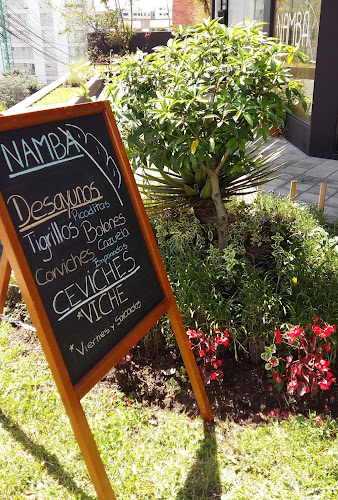 NAMBA
Desayunos
Picaditas
Tigrillos
Bolones
Corviches
Cazuela
Empanadas
CEVICHES
*VICHE
*Viernes y Sábados
NAMBA